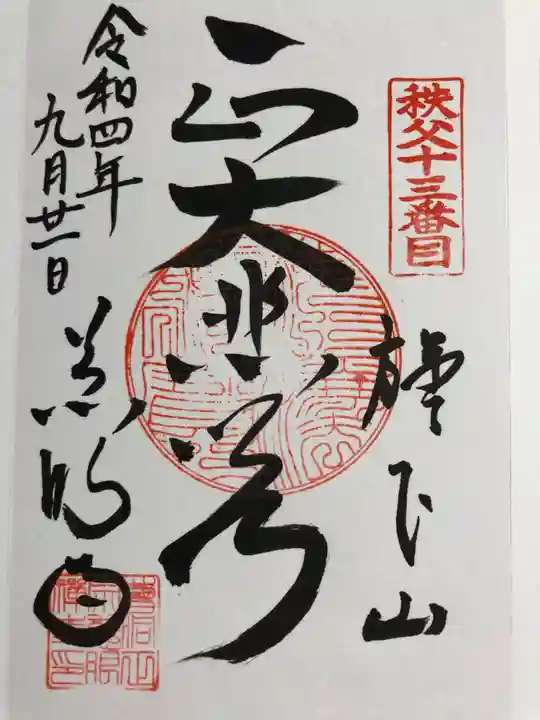 秩父十三番目
旗下山
正大悲
令和四年
九月廿一日
慈眼寺